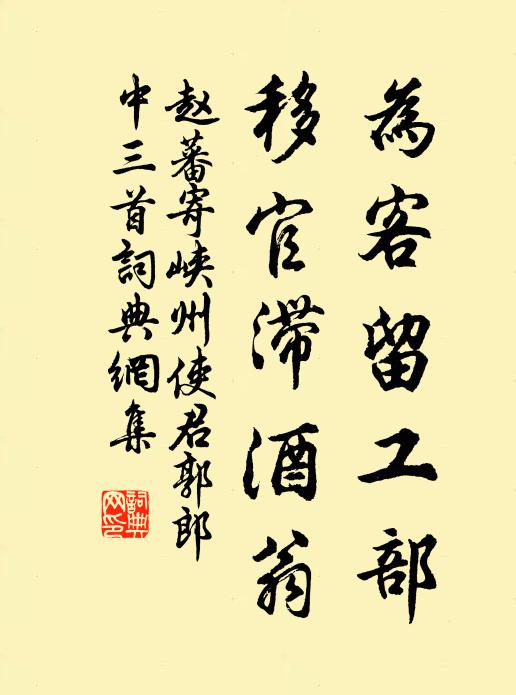 為客留工部
移官滯酒翁
赵蕃寄峡州使君郭郎
中三首詞典網集
詞典
网印